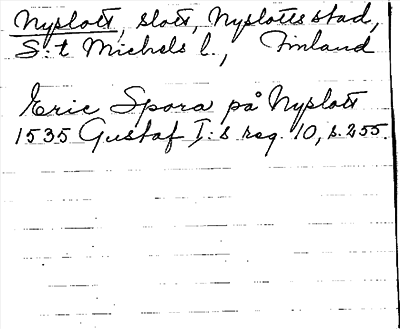 Nyslott, slott, Nyslotts stad,
S:t Michels l., Finland
Eric Spora på Nyslott
1535 Gustaf I:s reg. 10, s. 255.